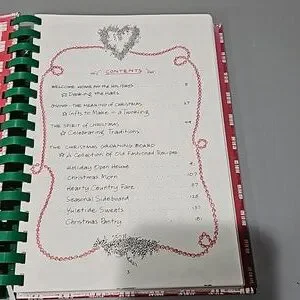 CONTENTS
WELCOME HOME FOR THE HOLIDAYS 5
Decking the Halls
GIVING - THE MEANING OF CHRISTMAS 27
Gifts to Make
THE SPIRIT OF CHRISTMAS
Celebrating Traditions
THE CHRISTMAS GROANING BOARD
A Collection of Old Fashioned Recipes
Holiday Open House
Christmas Morn 107
Hearty Country Fare
Seasonal Sideboard
Yuletide Sweets
Christmas Pantry
3